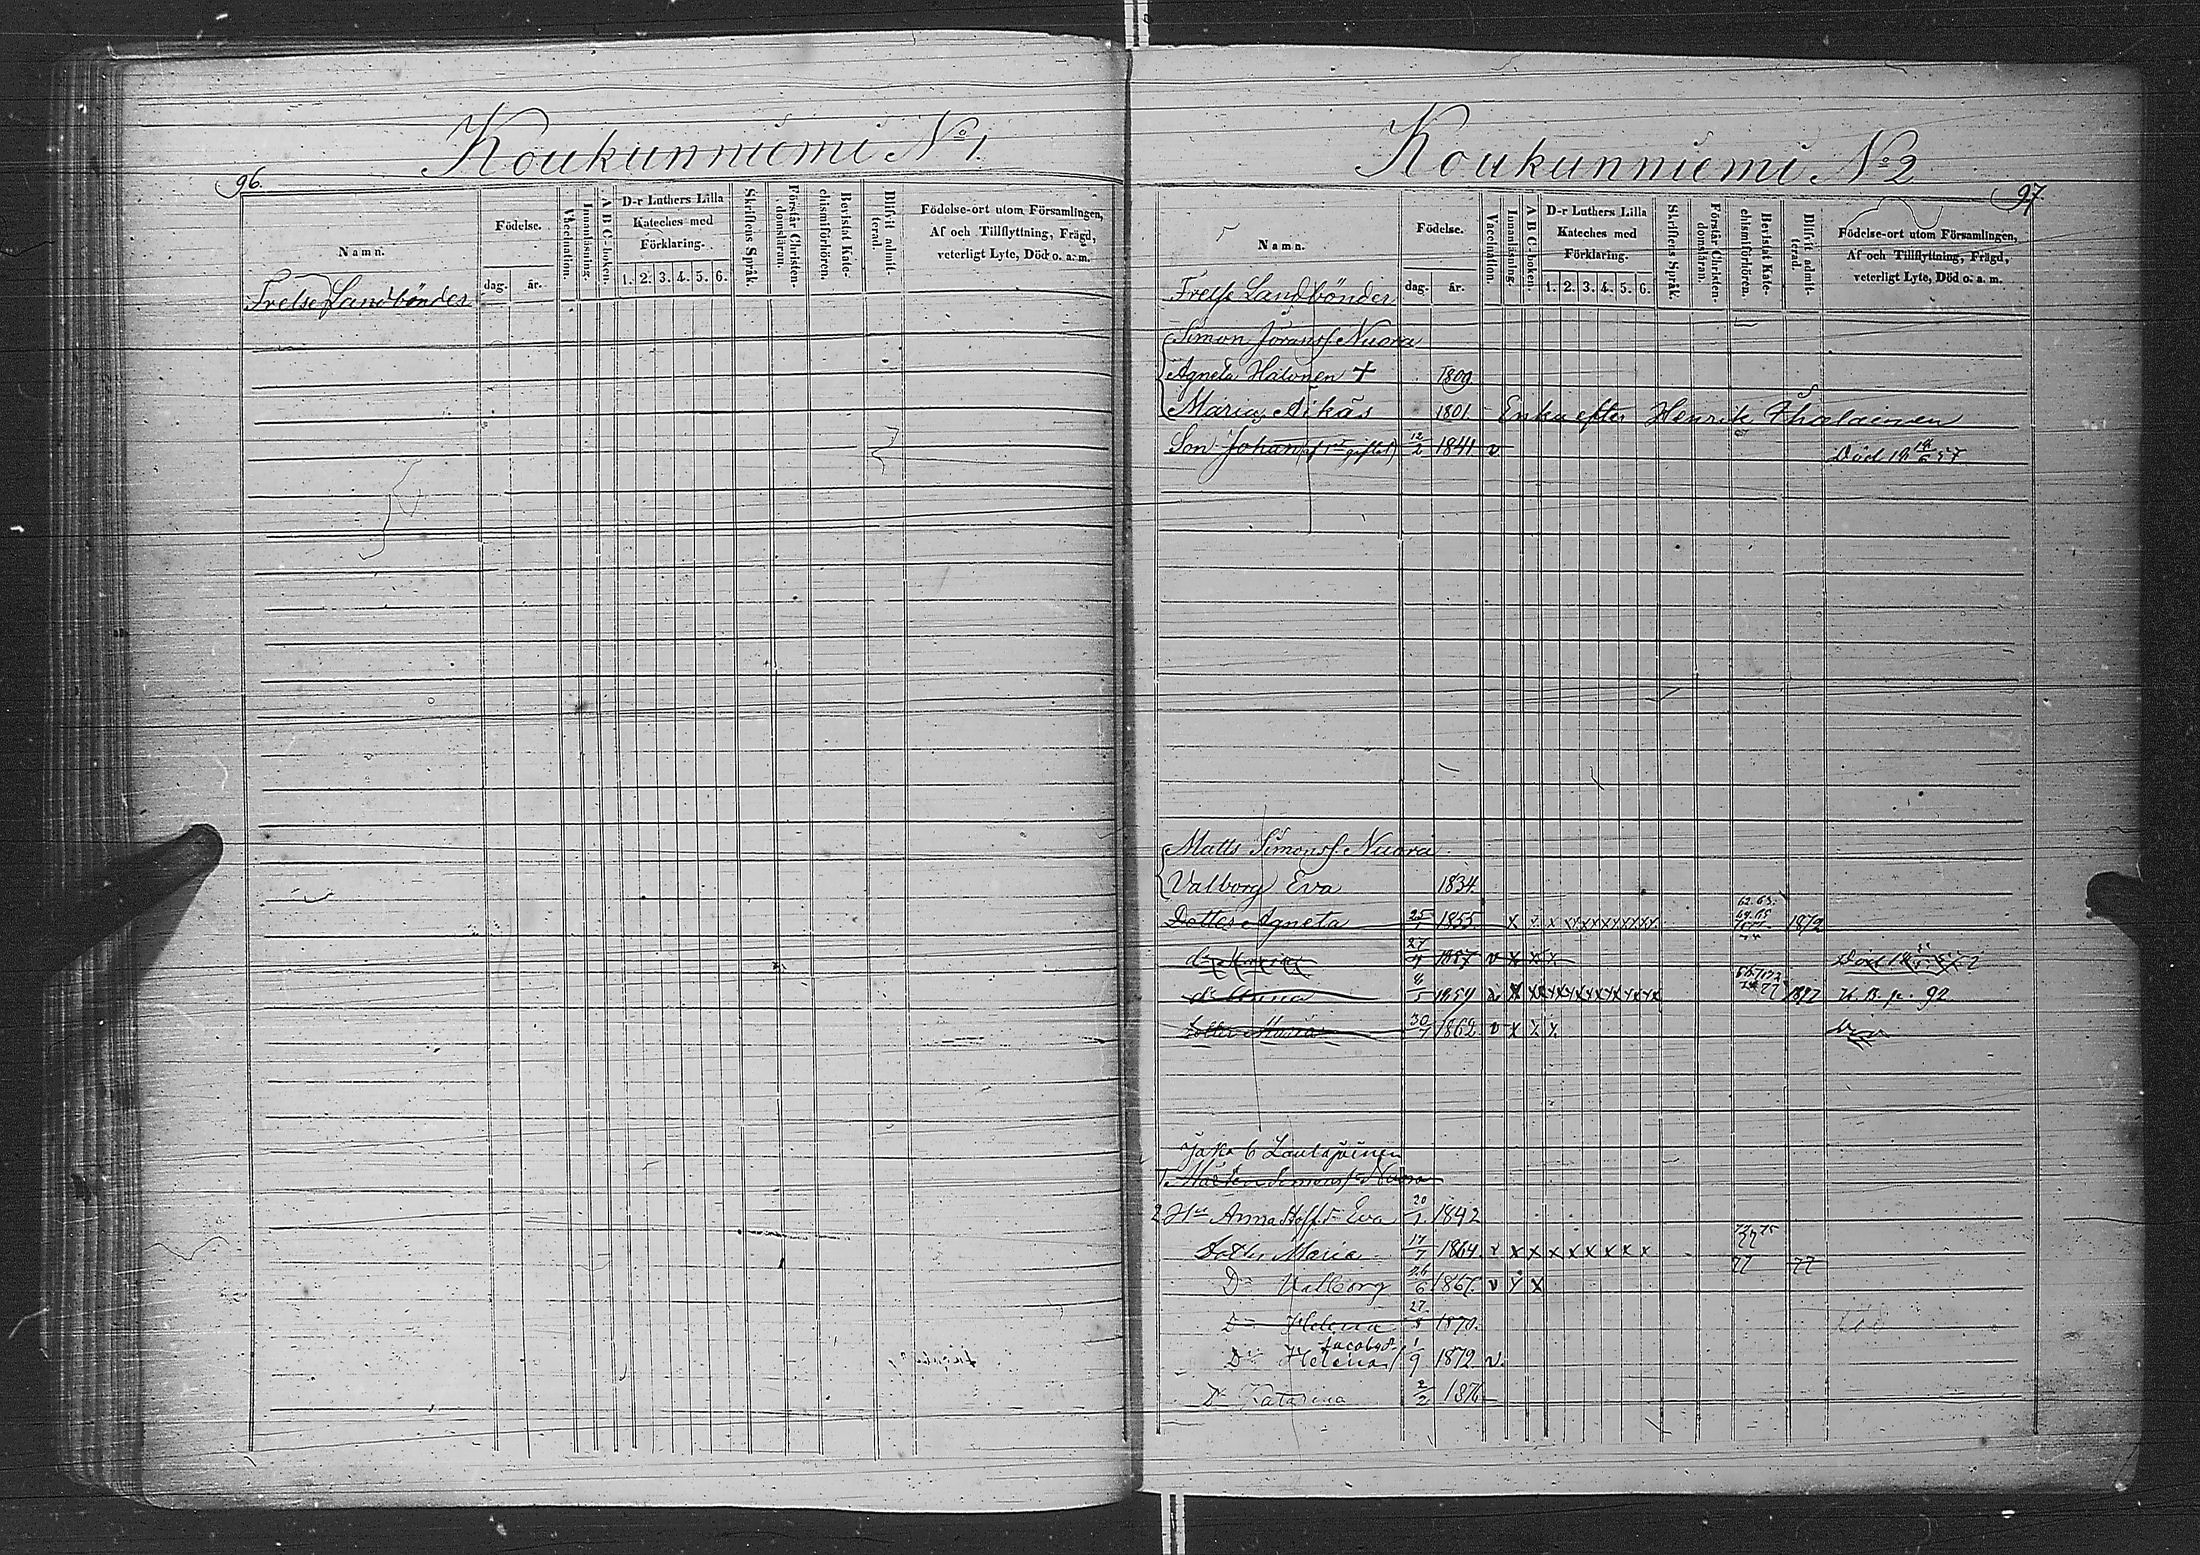 Koukunniemi No 1.
96.
Namn.
Födelse.
dag.
år.
Vaccination.
Innanläsning.
A B C-boken.
D-r Luthers Lilla
Kateches med
Förklaring.
1. 2. 3. 4. 5. 6.
Skriftens Språk.
Förstår Christen-
domsläran.
Bevistat Kate-
chismiförhören.
Blifvit admit-
terad.
Födelse-ort utom Församlingen,
Af och Tillflyttning, Frägd,
veterligt Lyte, Död o. a. m.
Frelse Landbönder
Koukunniemi No 2
97
Namn.
Födelse.
dag.
år.
Vaccination.
Innanläsning.
A B C-boken.
D-r Luthers Lilla
Kateches med
Förklaring.
1. 2. 3. 4. 5. 6.
Skriftens Språk.
Förstår Christen-
domsläran.
Bevistat Kate-
chismiförhören.
Blifvit admit-
terad.
Födelse-ort utom Församlingen,
Af och Tillflyttning, Frägd,
veterligt Lyte, Död o. a. m.
Frelse Landbönder
Simon Göranss. Nuora
Agneta Halonen + 1809
Maria Äikäs 1801 Enka efter Henrik
Son Johan (af 1sta giftet) 12/2 1841 v Död
Matts Simonss. Nuora
Valborg Eva 1834.
Dotter Agneta 25 1855 x v x x x x x x x x x 62. 63. 1872
d:o Maria 27 1857 v x x x Död
d:o Anna 5 1859 x x x x x x x x x 1877 K. B. p. 92
Dotter Maria 30 1862 v x x x
Jakob Lautajoinen
1. Mårten Simonss. Nuora
2 Hu Anna Eva 20/1 1842
Dotter Maria 17/7 1864 v x x x x x x x x 75 77 77
D:o Valborg 6 1867. v x x
D:o Helena 27/8 1870.
D:o Helena Jacobsd. 1/9 1872 v.
D:o Katarina 2/2 1876